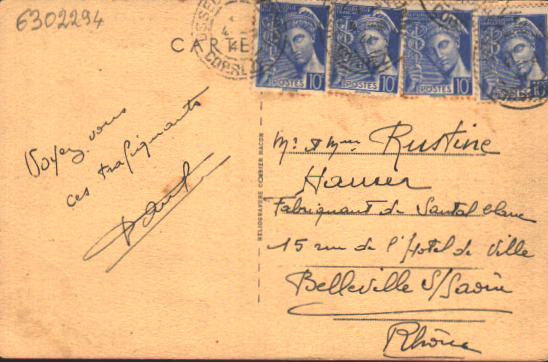 6302294
CARTE
USSEL
CORREZE
POSTES 10
POSTES 10
POSTES 10
POSTES 10
Voyez-vous
ces trafiquants
HELIOGRAPHIE COMBIER MACON
Mr. & Mme Rustine
Hauser
Fabriquant de Santal blanc
15 rue de l'Hotel de Ville
Belleville S/Saône
Rhône